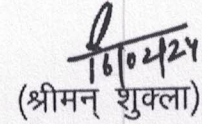 16/02/24
(श्रीमन् शुक्ला)